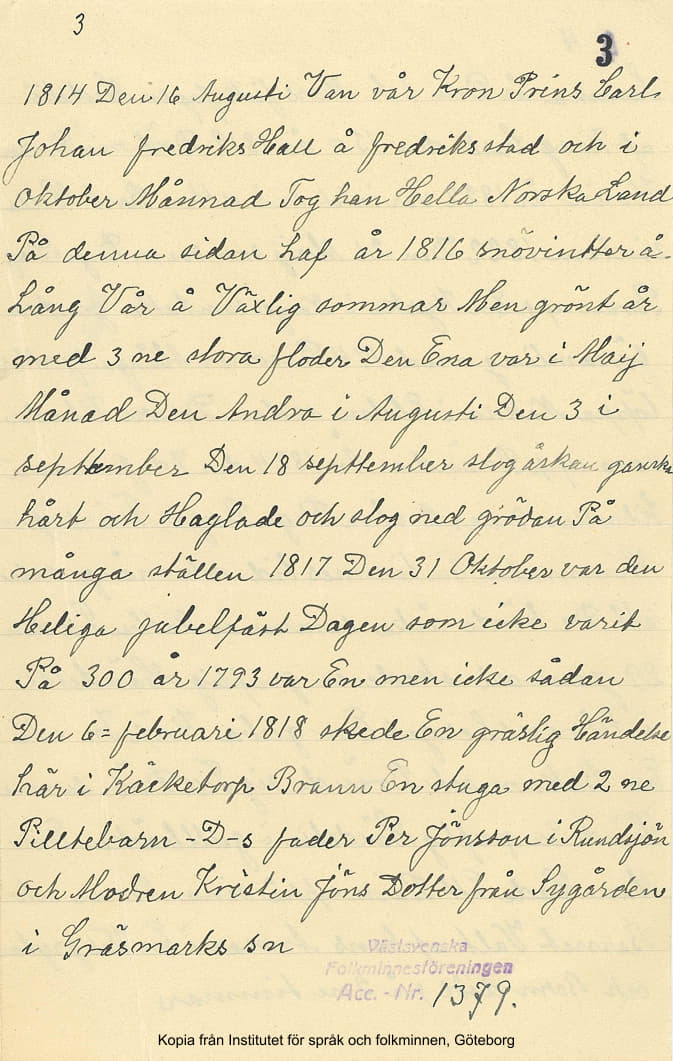 3
3
1814 Den 16 Augusti Van vår Kron Prins Carl
Johan fredriks Hall å fredriksstad och i
Oktober Månnad Tog han Hella Norska Land
På denna sidan haf år 1816 snövintter å
Lång Vår å Växlig sommar Men grönt år
med 3 ne stora floder Den Ena var i Maij
Månad Den Andra i Augusti Den 3 i
septtember Den 18 septtember slog åskan ganska
hårt och Haglade och slog ned grödan På
många ställen 1817 Den 31 Oktober var den
Heliga jubelfäst Dagen som icke varit
På 300 år 1793 var En men icke sådan
Den 6= februari 1818 skede En gräslig Händelse
här i Käcketorp Brann En stuga med 2 ne
Pilltebarn - D-s fader Per Jönsson i Rundsjön
och Modren Kristin Jöns Dotter från Sygården
i Gräsmarks sn
Västsvenska
Folkminnesföreningen
Acc. - Nr. 1379.
Kopia från Institutet för språk och folkminnen, Göteborg